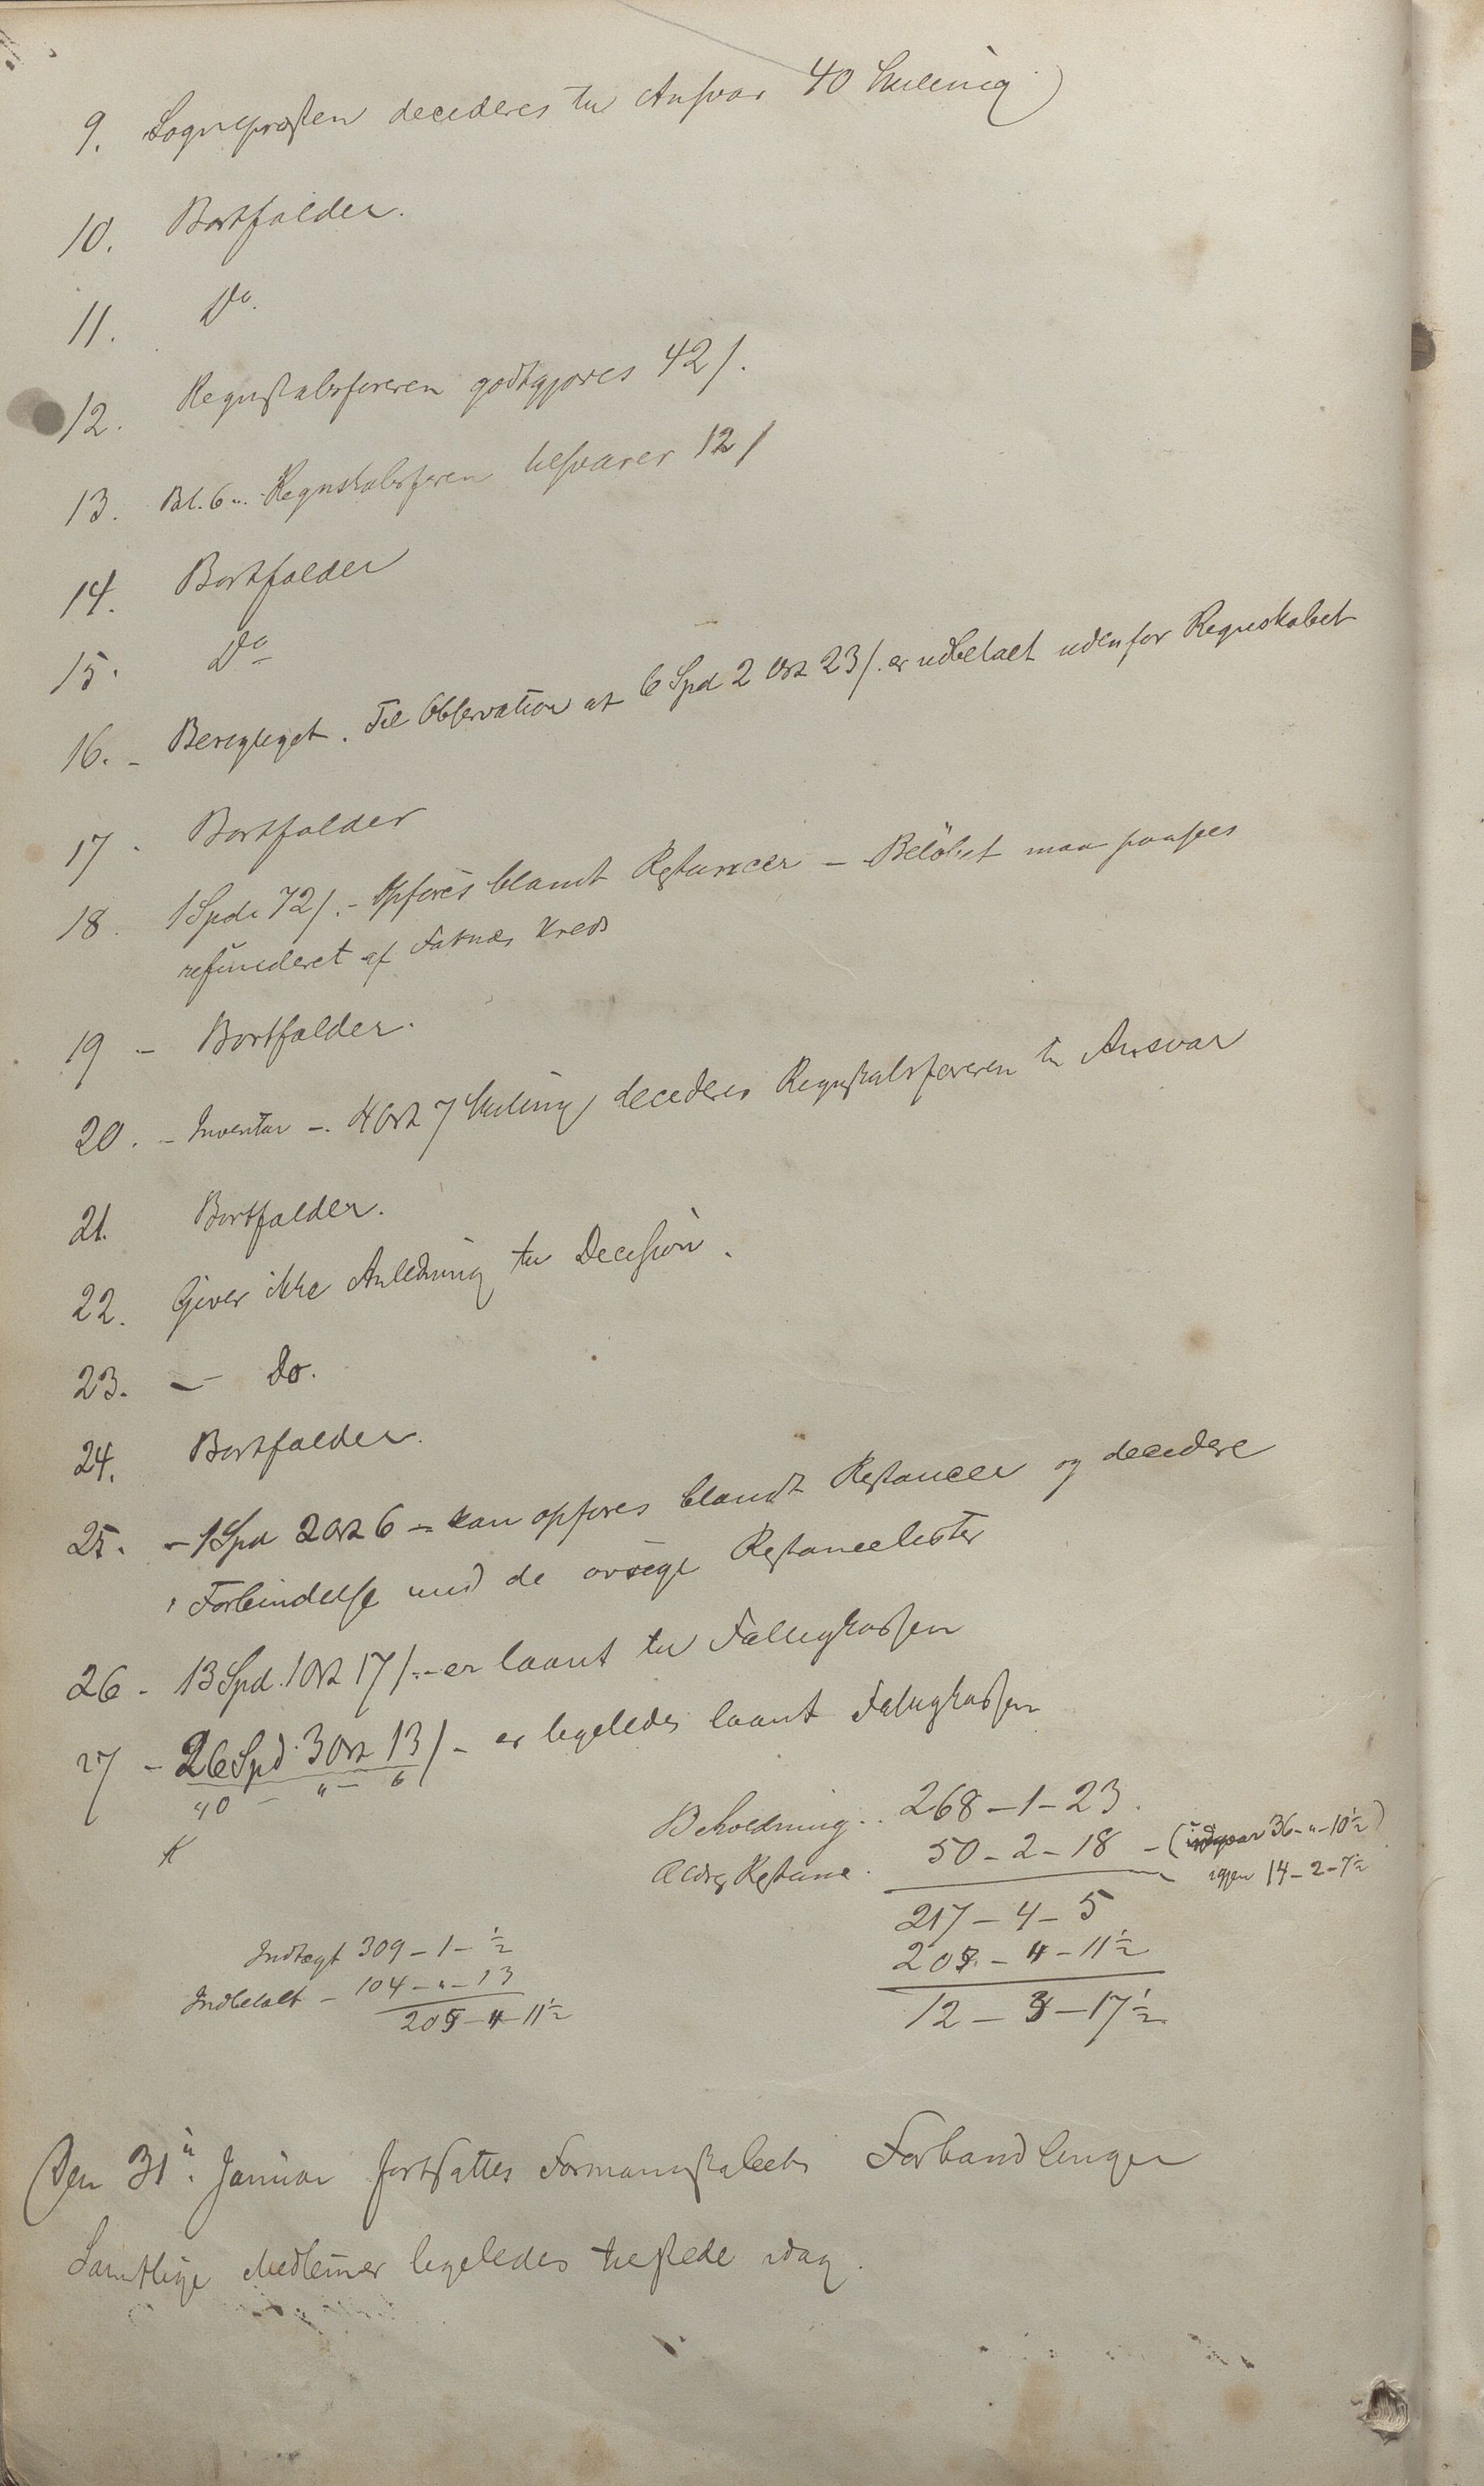 9. Sognepræsten decideres til Ansvar 40 Skilling
10. Bortfalder.
11. Do.
12. Regnskabsføreren godtgjøres 42 /.
13. Bl. 6 .. Regnskabsføren besvarer 12 /
14. Bortfalder
15. Do
16. - Berigtiget. Til Observation at 6 Spd 2 Ort 23 /. er udbetalt udenfor Regnskabet
17. Bortfalder
18. 1 Spd. 72 /. - Opføres blandt Restancer - Beløbet maa paasees
refunderet af Kreds
19 - Bortfalder.
20. - Inventar -. 4 Ort 7 Skilling decideres Regnskabsføreren til Ansvar
21. Bortfalder.
22. Giver ikke Anledning til Decision.
23. - Do.
24. Bortfalder.
25. - 1 Spd 2 Ort 6 - kan opføres blandt Restancer og decidere
i Forbindelse med de øvrige Restancelister
26 - 13 Spd. 1 Ort 17 /. - er laant til Fattigkassen
27 - 26 Spd. 3 Ort 13 / - er ligeledes laant Fattigkassen
40 - " - 6
Beholdning .. 268 - 1 - 23.
Restance . 50 - 2 - 18 - ( 36 - " - 10½)
igjen 14 - 2 - 7½
217 - 4 - 5
205 - 4 - 11½
12 - 3 - 17½
Indtægt 309 - 1 - ½
Indbetalt - 104 - " - 13
205 - 4 - 11½
Den 31te Januar fortsattes Formannskabets Forhandlinger
Samtlige Medlemer ligeledes tilstede idag.